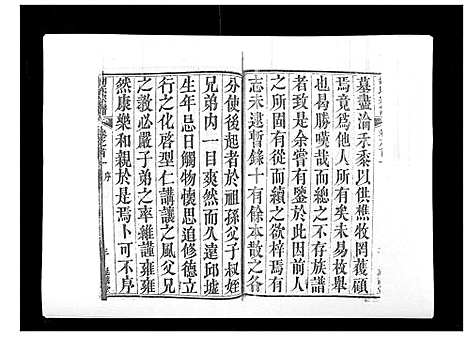 墓盡淪禾黍以供樵牧罔獲碩
焉竟爲他人所有矣未易枚舉
也曷勝嘆哉而總之不存族譜
者致是余嘗有鑒於此因前人
之所固有從而續之欲梓焉有
志未逮暫錄十有餘本散之各
分使後起者於祖孫父子叔姪
兄弟內一目爽然而久遠邱墟
生年忌日與夫創修德立
行之化啓型仁講讓之風父兄
之教必嚴子弟之率維謹雍雍
然康樂和親於是焉卜可不序
序